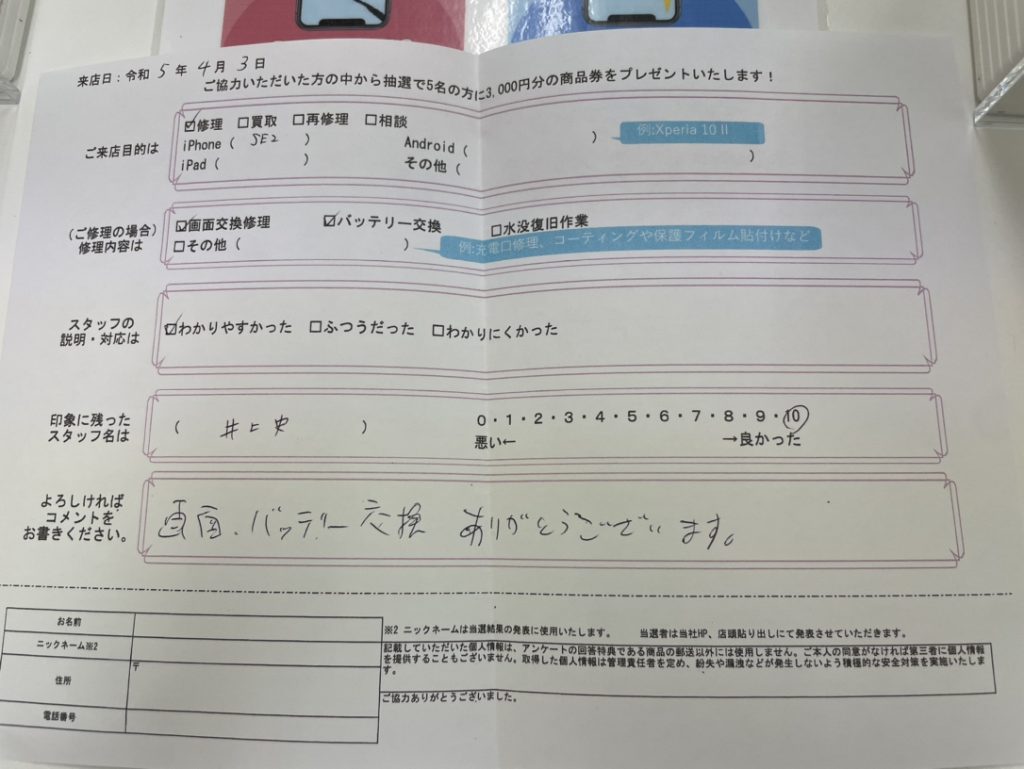 来店日：令和 5 年 4 月 3 日
ご協力いただいた方の中から抽選で5名の方に3,000円分の商品券をプレゼントいたします！
ご来店目的は
☑修理 □買取 □再修理 □相談
iPhone（ SE2 ） Android（ ） 例:Xperia 10 II
iPad（ ） その他（ ）
（ご修理の場合）
修理内容は
☑画面交換修理 ☑バッテリー交換 □水没復旧作業
□その他（ ） 例:充電口修理、コーティングや保護フィルム貼付けなど
スタッフの
説明・対応は
☑わかりやすかった □ふつうだった □わかりにくかった
印象に残った
スタッフ名は
（ 井上 ）
0・1・2・3・4・5・6・7・8・9・10
悪い← →良かった
よろしければ
コメントを
お書きください。
画面、バッテリー交換 ありがとうございます。
お名前
ニックネーム※2
住所
〒
電話番号
※2 ニックネームは当選結果の発表に使用いたします。 当選者は当社HP、店頭貼り出しにて発表させていただきます。
記載していただいた個人情報は、アンケートの回答特典である商品の郵送以外には使用しません。ご本人の同意がなければ第三者に個人情報
を提供することもございません。取得した個人情報は管理責任者を定め、紛失や漏洩などが発生しないよう積極的な安全対策を実施いたしま
す。
ご協力ありがとうございました。